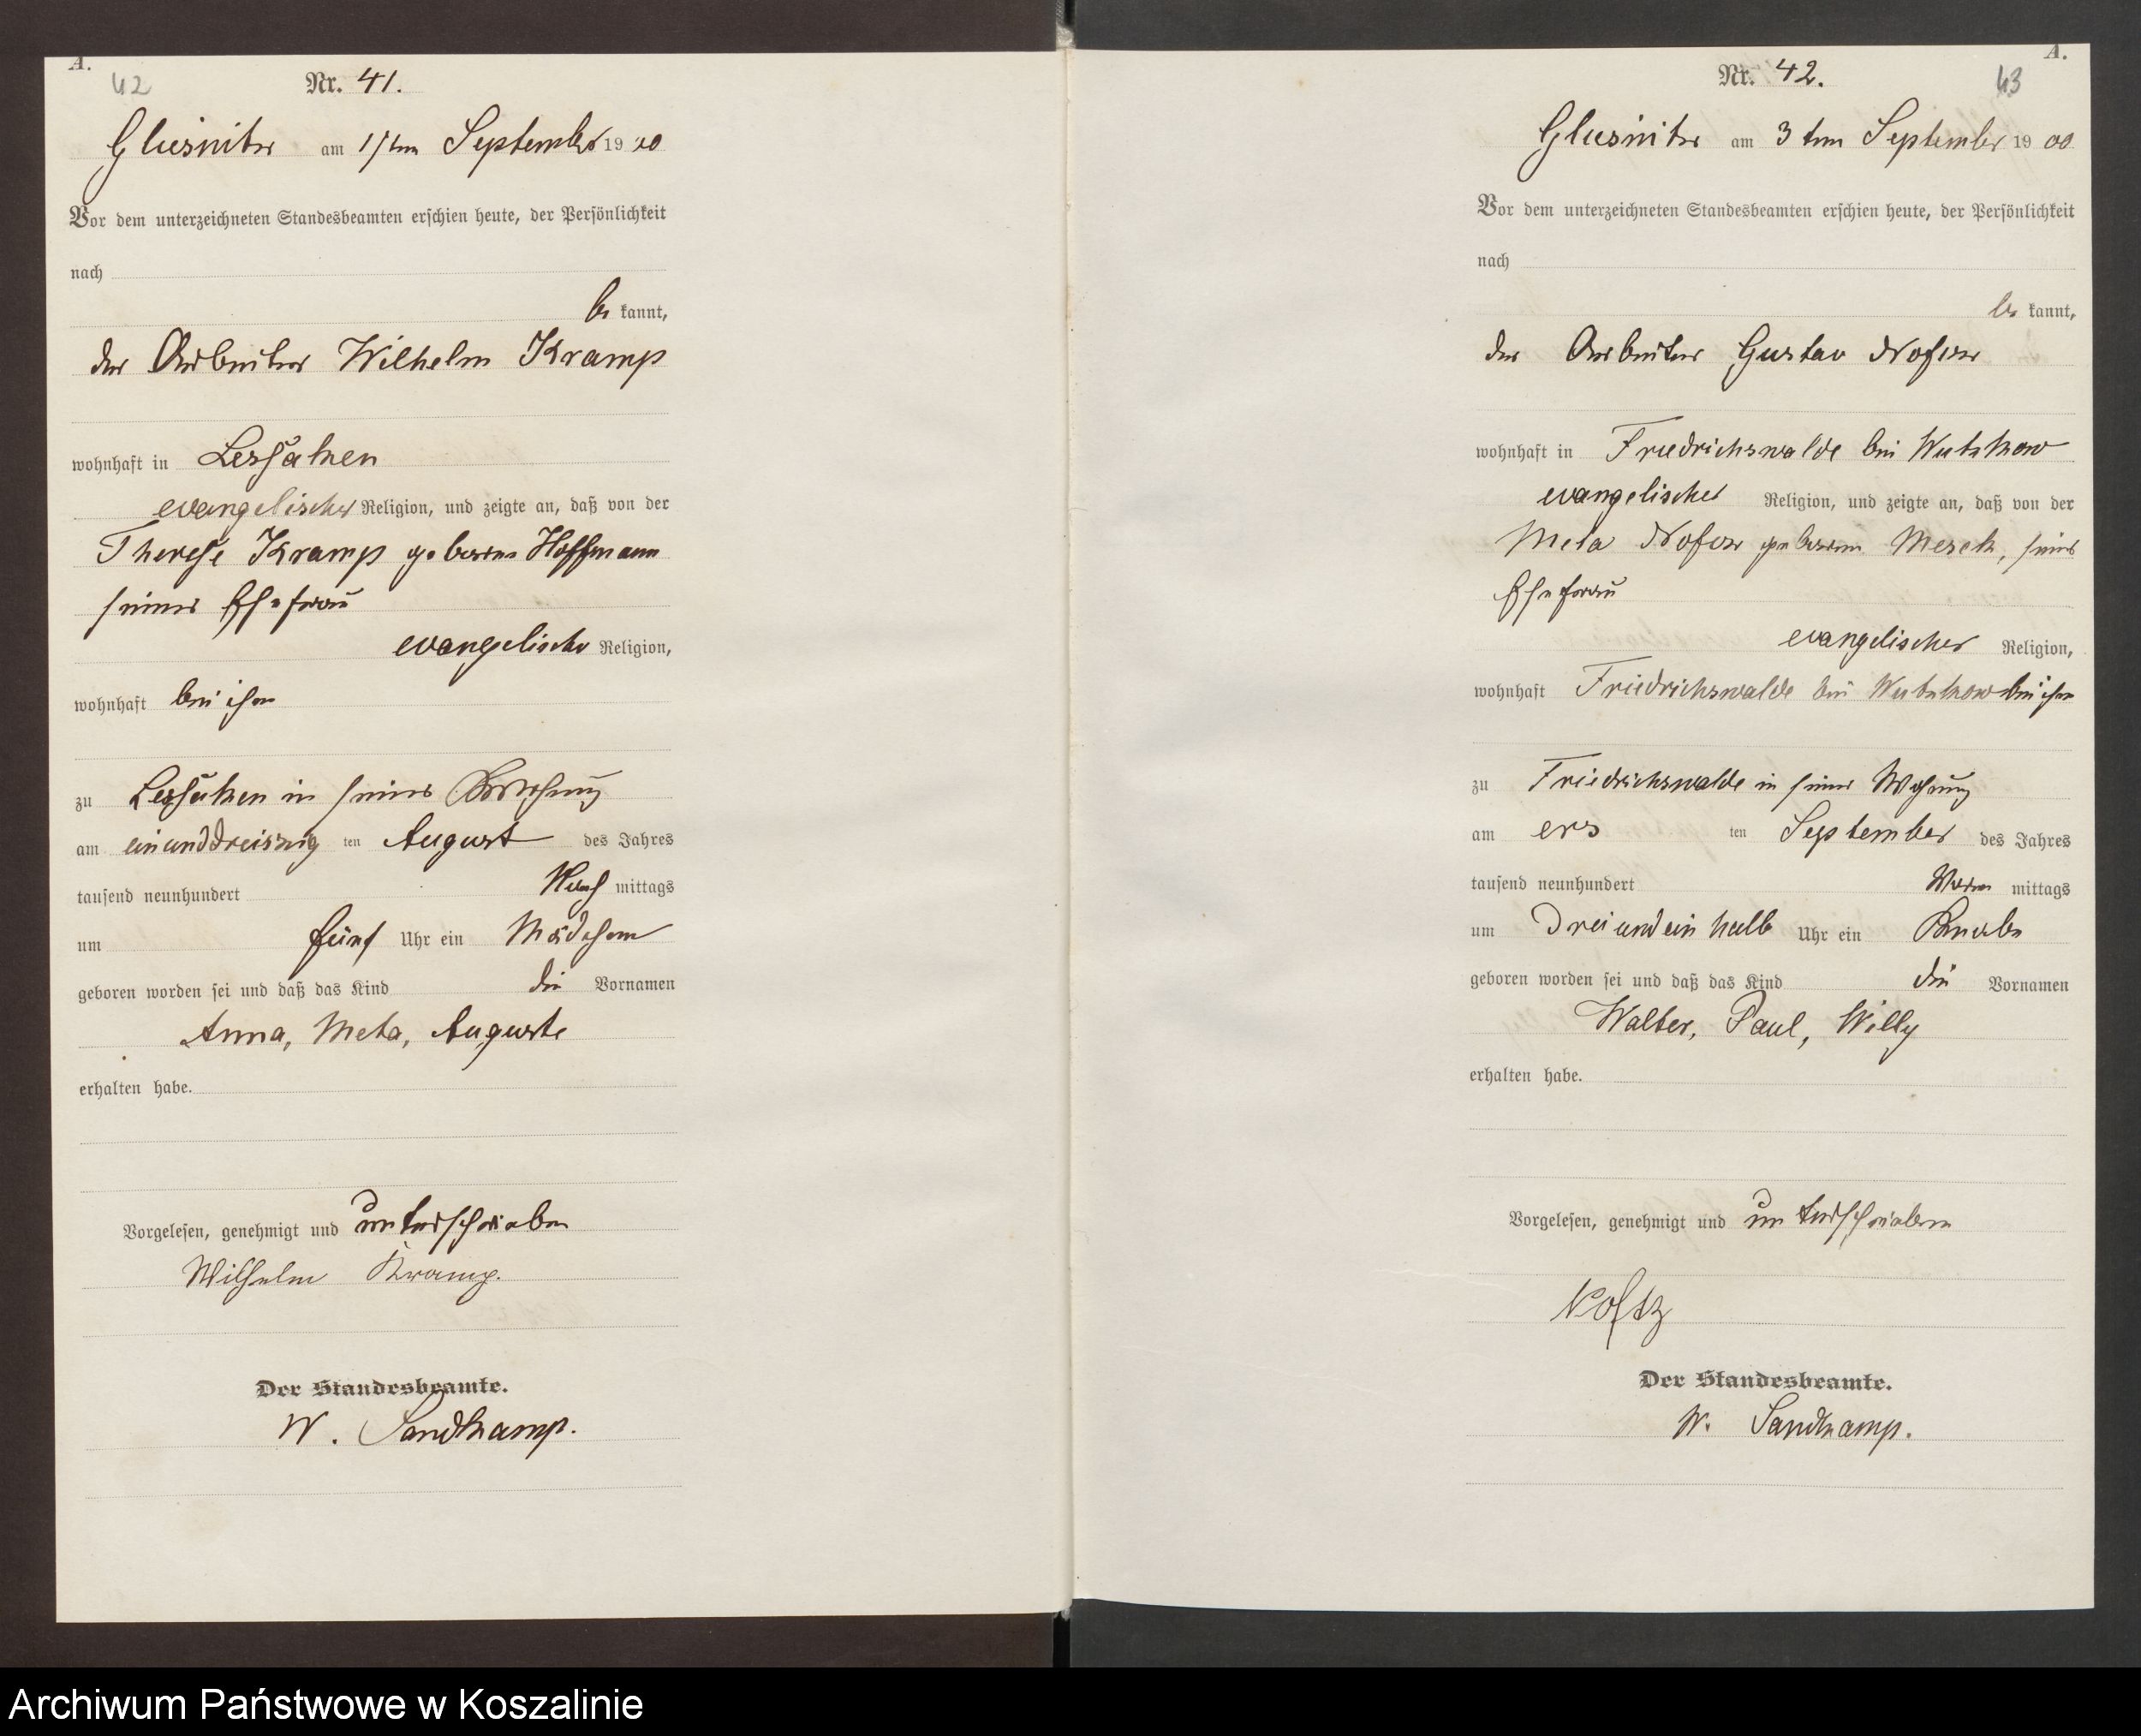 A.
42
Nr. 41.
Glusnitz am 1ten September 1900
Vor dem unterzeichneten Standesbeamten erschien heute, der Persönlichkeit
nach
be kannt,
der Arbeiter Wilhelm Kramp
wohnhaft in Lessaken
evangelischer Religion, und zeigte an, daß von der
Therese Kramp geborene Hoffmann
seiner Ehefrau
evangelischer Religion,
wohnhaft bei ihm
zu Lessaken in seiner Wohnung
am einunddreiszig ten August des Jahres
tausend neunhundert Nach mittags
um fünf Uhr ein Mädchen
geboren worden sei und daß das Kind die Vornamen
Anna, Meta, Auguste
erhalten habe.
Vorgelesen, genehmigt und unterschrieben
Wilhelm Kramp.
Der Standesbeamte.
W. Sandkamp.
A.
Nr. 42.
43
Glusnitz am 3ten September 1900
Vor dem unterzeichneten Standesbeamten erschien heute, der Persönlichkeit
nach
be kannt,
der Arbeiter Gustav
wohnhaft in Friedrichswalde bei Wutzkow
evangelischer Religion, und zeigte an, daß von der
Meta geborene Mesek, seiner
Ehefrau
evangelischer Religion,
wohnhaft Friedrichswalde bei Wutzkow bei ihm
zu Friedrichswalde in seiner Wohung
am ers ten September des Jahres
tausend neunhundert Vor mittags
um Drei und ein halb Uhr ein Knabe
geboren worden sei und daß das Kind die Vornamen
Walter, Paul, Willy
erhalten habe.
Vorgelesen, genehmigt und unterschrieben
Der Standesbeamte.
W. Sandkamp.
Archiwum Państwowe w Koszalinie